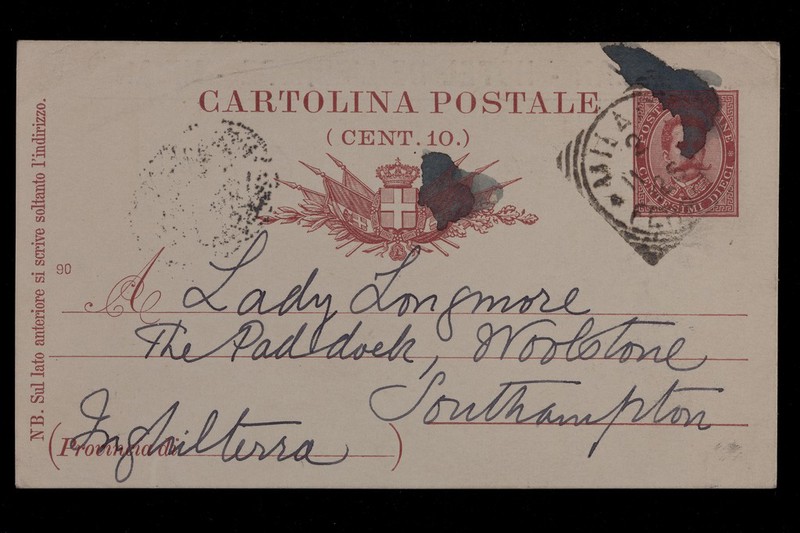 CARTOLINA POSTALE
(CENT. 10.)
NB. Sul lato anteriore si scrive soltanto l'indirizzo.
90
A Lady Longmore
The Paddock, Woolstone
Southampton
(Provincia di )
Inghilterra
MILA
CENTESIMI DIECI